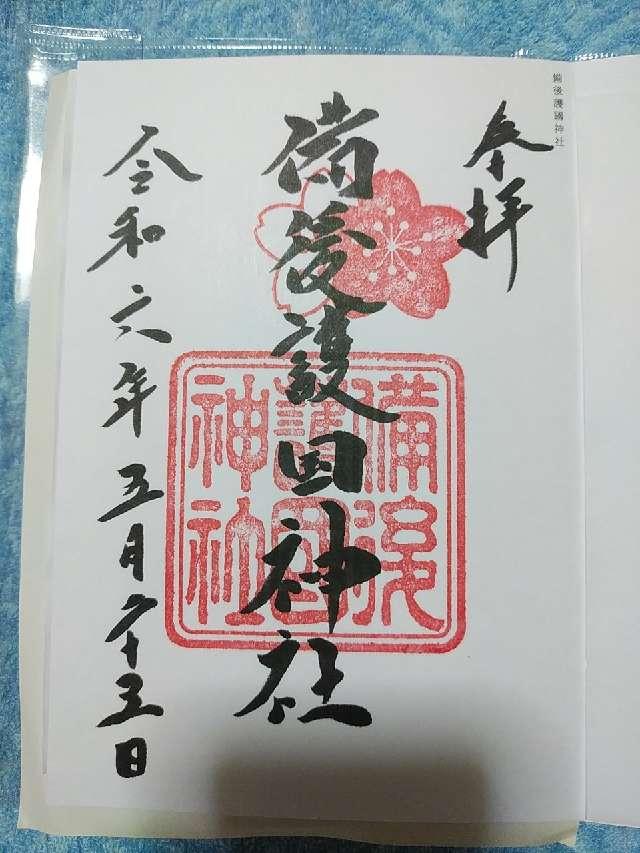 備後護國神社
奉拝
備後護国神社
備後
護國
神社
令和六年五月二十五日